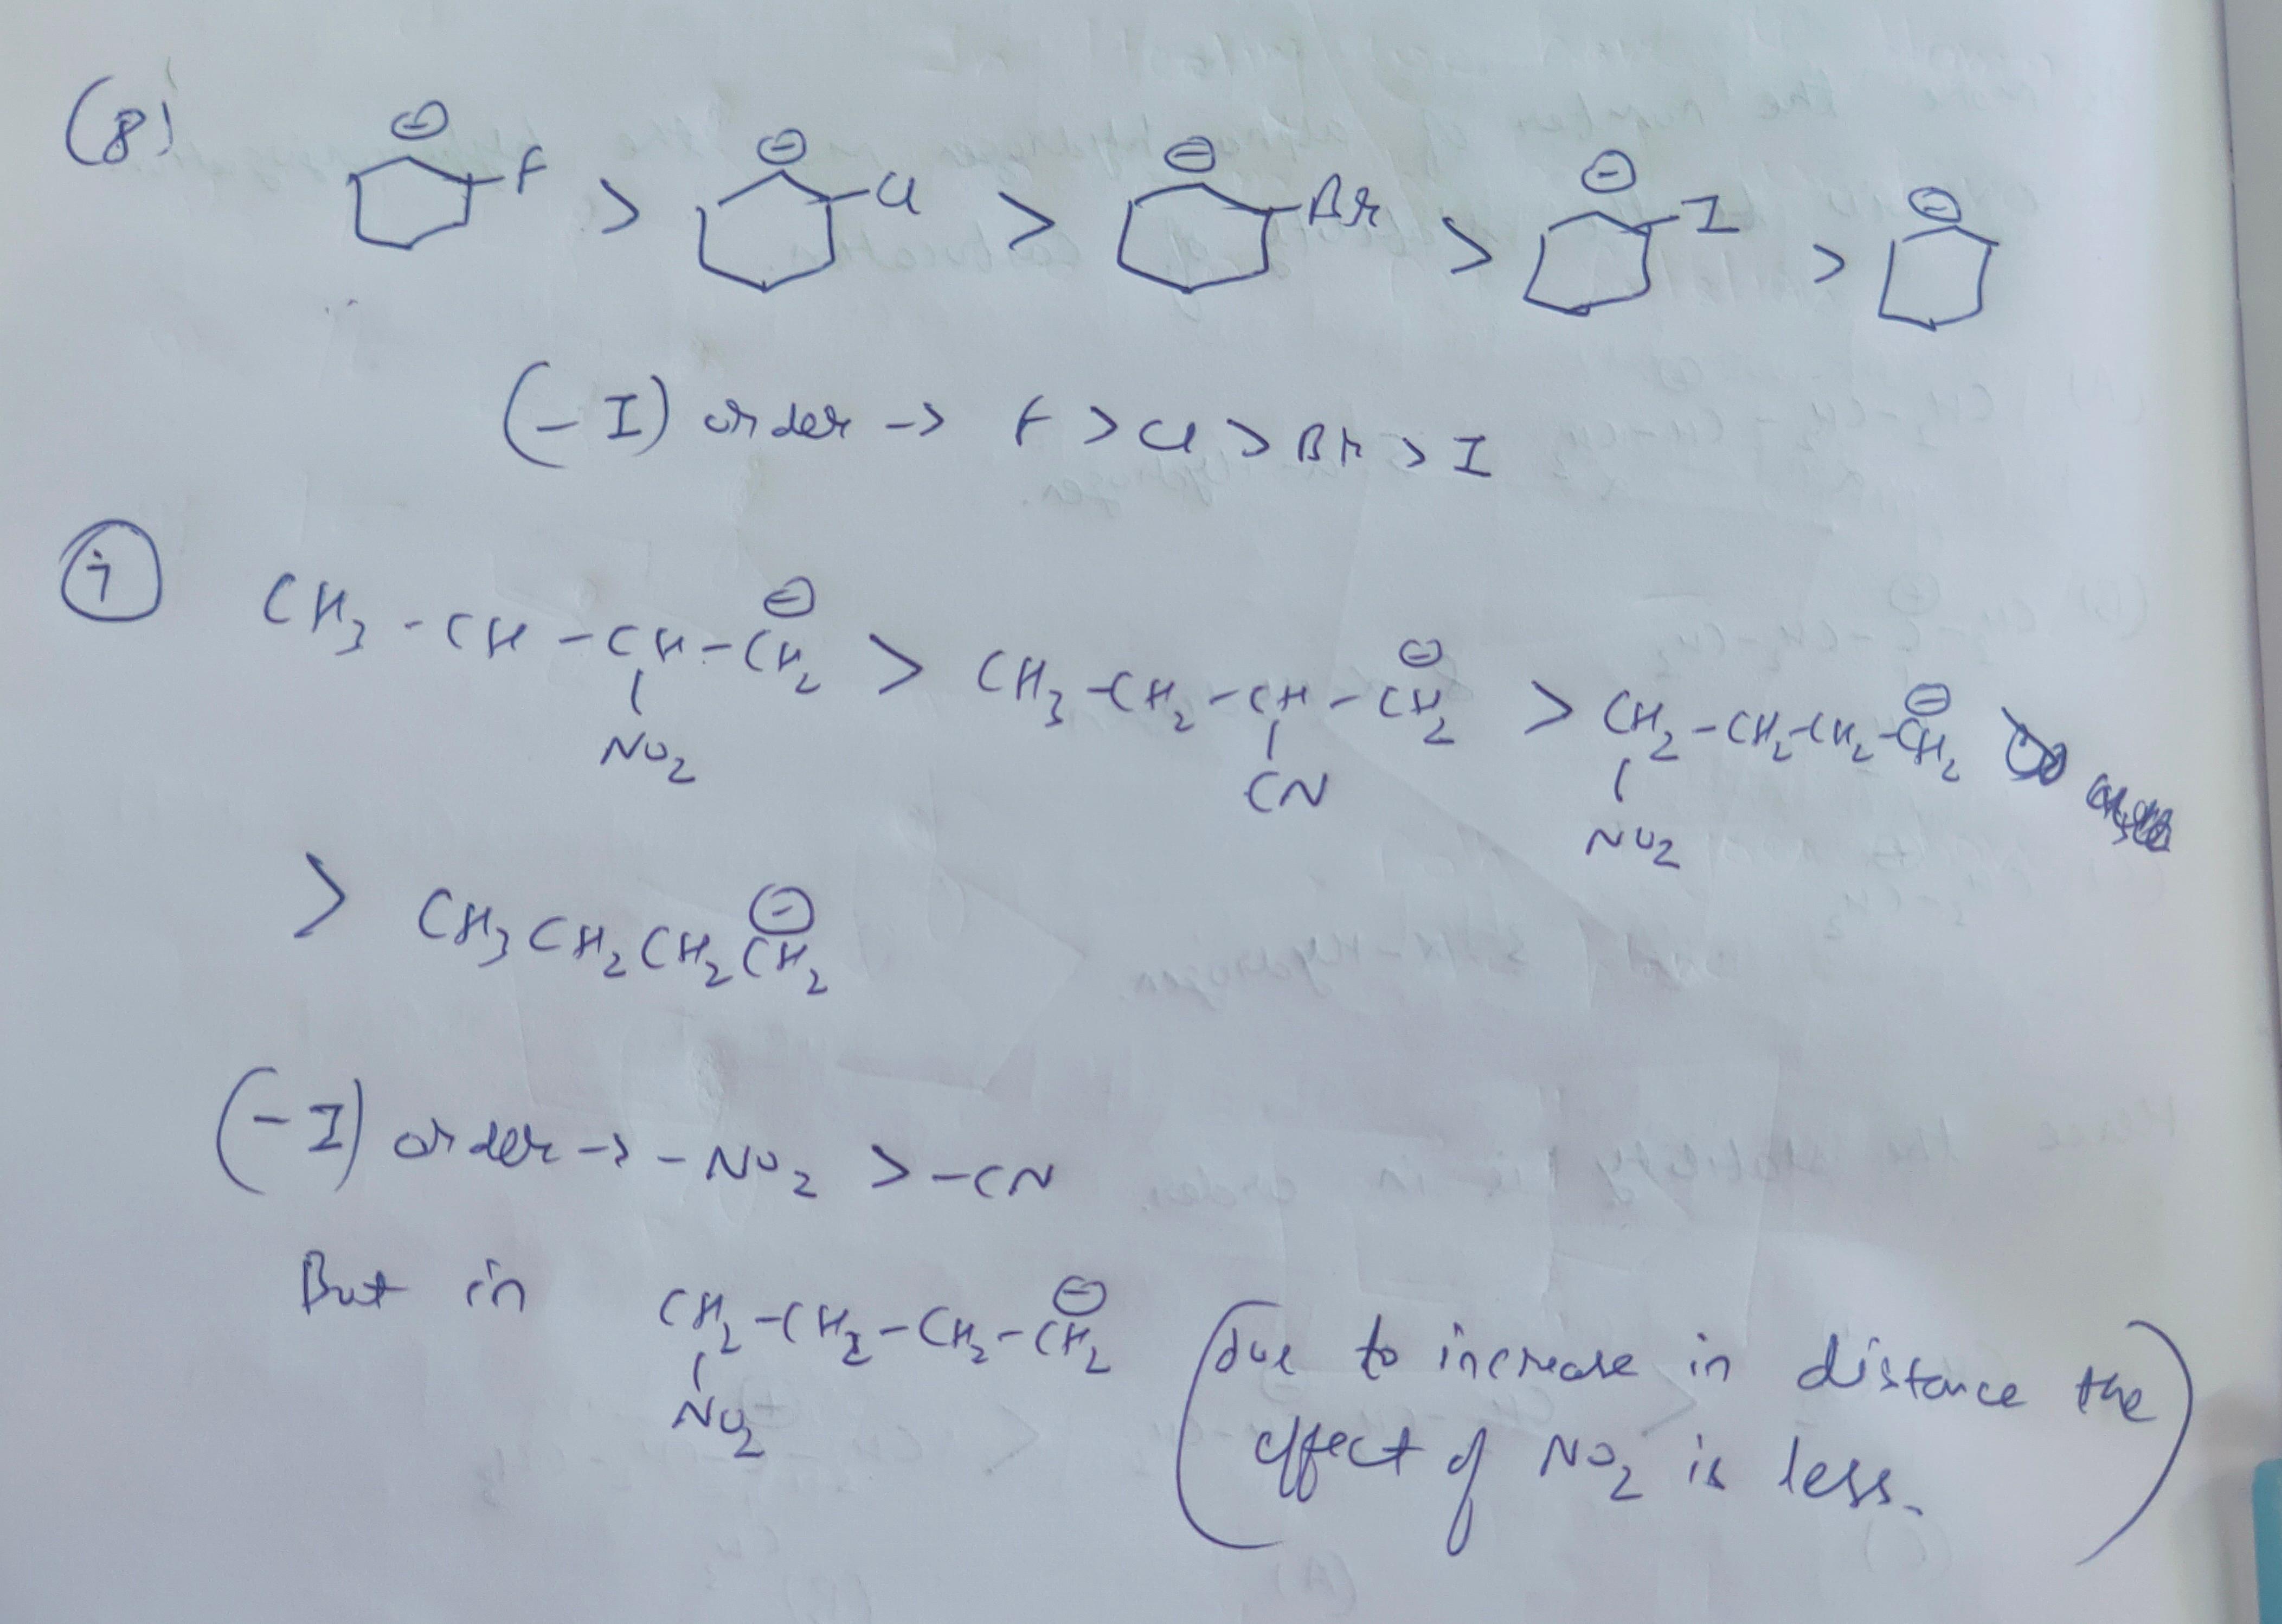 (8) ⊖ F > ⊖ Cl > ⊖ Br > ⊖ I > ⊖
(-I) order -> F > Cl > Br > I
i CH3 - CH - CH - CH2 ⊖ > CH3 - CH2 - CH - CH2 ⊖ > CH2 - CH2 - CH2 - CH2 ⊖
NO2 CN NO2
> CH3 CH2 CH2 CH2 ⊖
(-I) order -> - NO2 > - CN
But in CH2 - CH2 - CH2 - CH2 ⊖ (due to increase in distance the
NO2 effect of NO2 is less.)